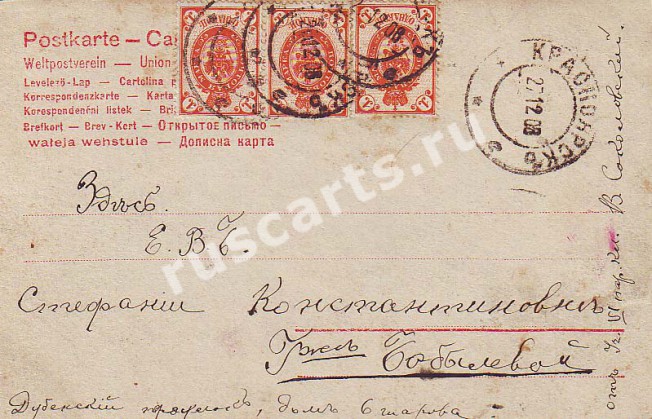 Postkarte — Ca
Weltpostverein — Union
Levelező-Lap — Cartolina
Korrespondenzkarte — Karta
Korespondenční lístek — Br
Brefkort — Brev-Kert — Открытое письмо —
waleja wehstule — Дописна карта
КРАСНОЯРСКЪ
27.12.08
Здѣсь
Е. В. Б.
Стефаніи Константиновнѣ
Гжѣ Бобылевой
Дубенскій домъ
отъ VI В Соколовскій.
ruscarts.ru